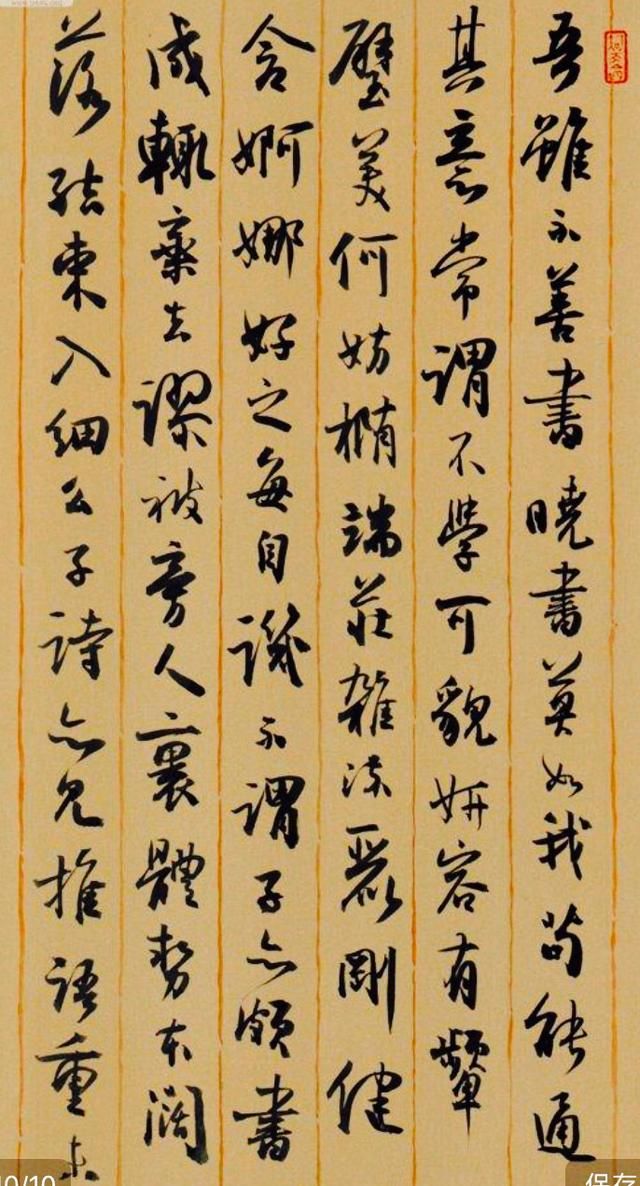 吾雖不善書曉書莫如我苟能通
其意常謂不學可貌妍容有顰
璧美何妨橢端莊雜流麗剛健
含婀娜好之每自譏不謂子亦頗書
成輒棄去謬被旁人裹體勢本闊
落結束入細么子詩亦見推語重未
10/10
保存